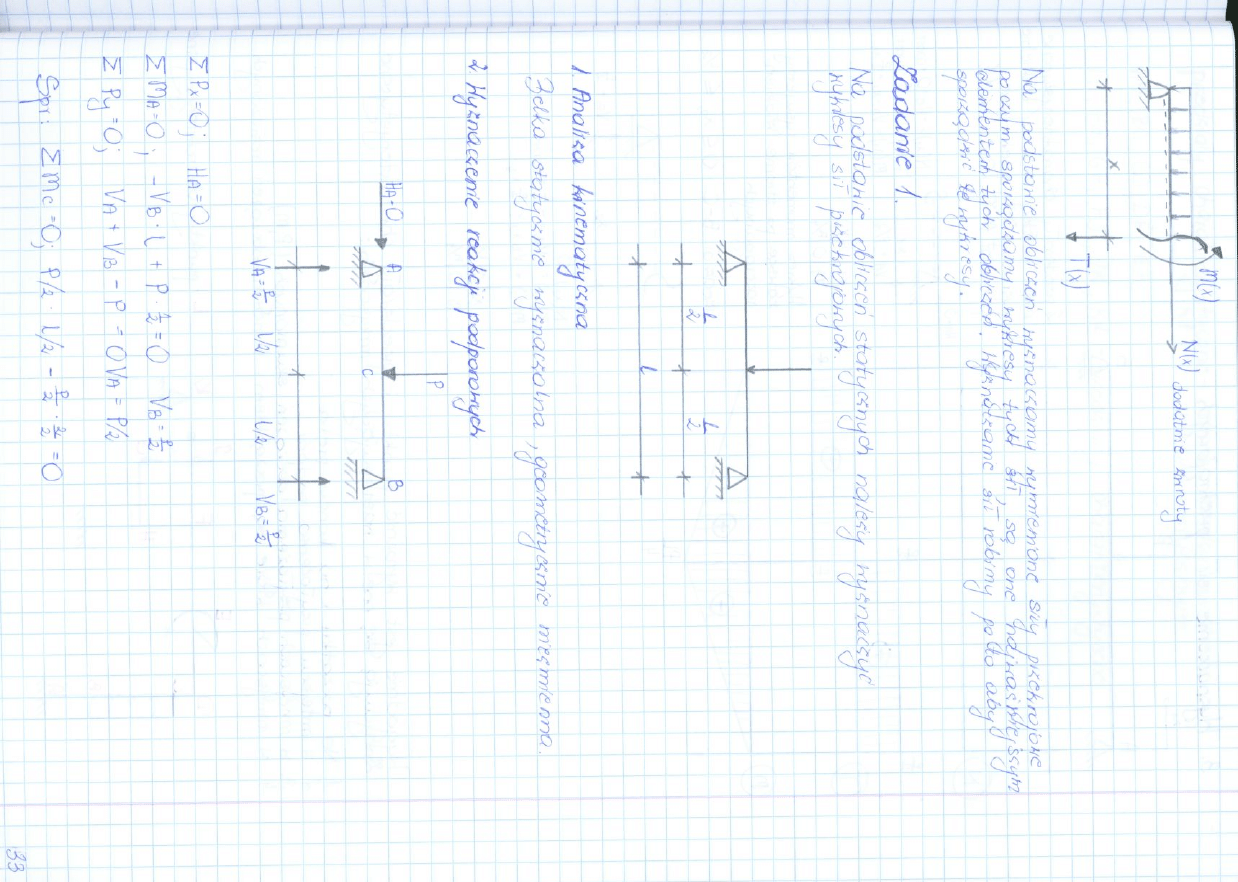 M(x)
N(x) dodatnie zwroty
T(x)
x
Na podstawie obliczeń wyznaczamy wymienione siły przekrojowe
poczym sporządzamy wykresy tych sił, są one najważniejszym
elementem tych obliczeń. Wyznaczanie sił robimy po to aby
sporządzić te wykresy.
Zadanie 1.
Na podstawie obliczeń statycznych należy wyznaczyć
wykresy sił przekrojowych.
L/2 L/2
L
1. Analiza kinematyczna
Belka statycznie wyznaczalna, geometrycznie niezmienna.
2. Wyznaczenie reakcji podporowych
P
HA=0 A C B
VA=P/2 L/2 L/2 VB=P/2
ΣPx=0; HA=0
ΣMA=0; -VB·L + P·L/2=0 VB=P/2
ΣPy=0; VA+VB-P=0 VA=P/2
Spr: ΣMc=0; P/2·L/2 - P/2·L/2=0
33